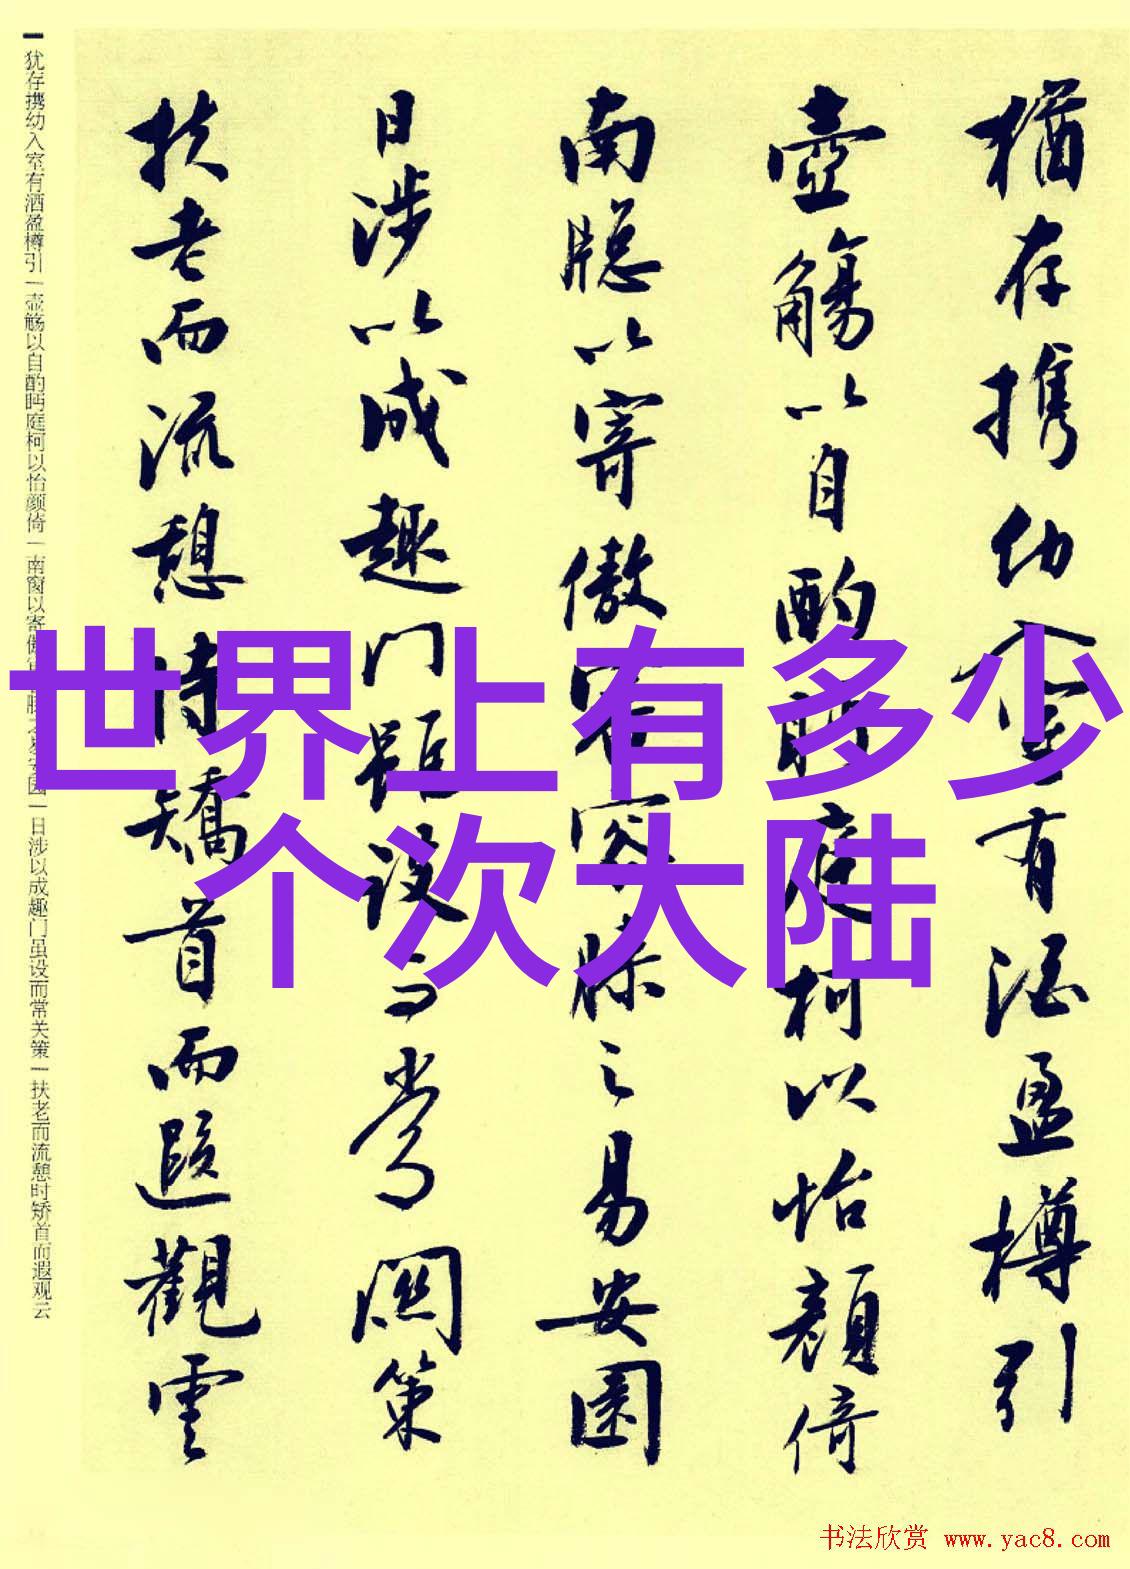 猶存携幼入室有酒盈樽引
壺觴以自酌眄庭柯以怡顔倚
南牕以寄傲審容膝之易安園
日涉以成趣門雖設而常関策
扶老而流憩時矯首而遐觀雲
世界上有多少
个次大陆
犹存携幼入室有酒盈樽引一壶觞以自酌眄庭柯以怡颜倚一南窗以寄傲审容膝之易安园一日涉以成趣门虽设而常关策一扶老而流憩时矫首而遐观云
书法欣赏 www.yac8.com